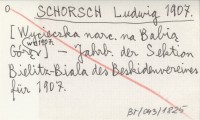 SCHORSCH Ludwig 1907.
[Wycieczka narc. na Babią
Górę] — Jahrb. der Sektion
Bielitz-Biala des Beskidenvereines
für 1907.